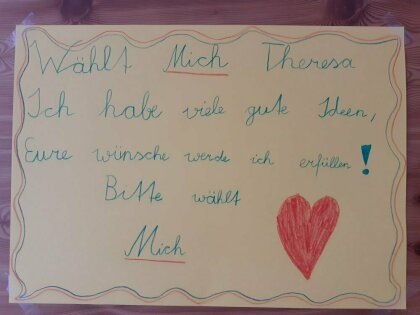 Wählt Mich Theresa
Ich habe viele gute Ideen,
Eure wünsche werde ich erfüllen!
Bitte wählt
Mich